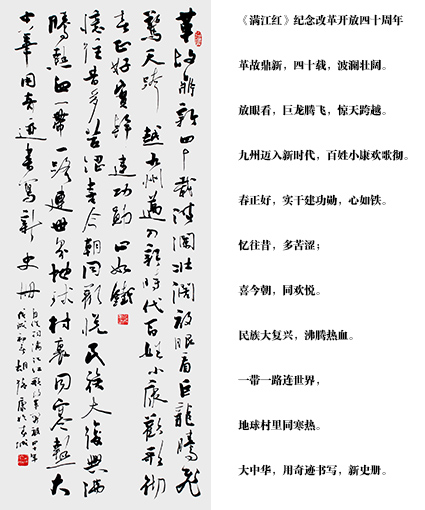 革故鼎新四十載波瀾壯闊放眼看巨龍騰飛
驚天跨越九州邁入新時代百姓小康歡歌彻
春正好實幹建功勛心如鐵
憶往昔多苦澀喜今朝同歡悦民族大復興沸
騰熱血一帶一路連世界地球村裏同寒熱大
中華用奇迹書寫新史册
《满江红》纪念改革开放四十周年
革故鼎新，四十载，波澜壮阔。
放眼看，巨龙腾飞，惊天跨越。
九州迈入新时代，百姓小康欢歌彻。
春正好，实干建功勋，心如铁。
忆往昔，多苦涩；
喜今朝，同欢悦。
民族大复兴，沸腾热血。
一带一路连世界，
地球村里同寒热。
大中华，用奇迹书写，新史册。